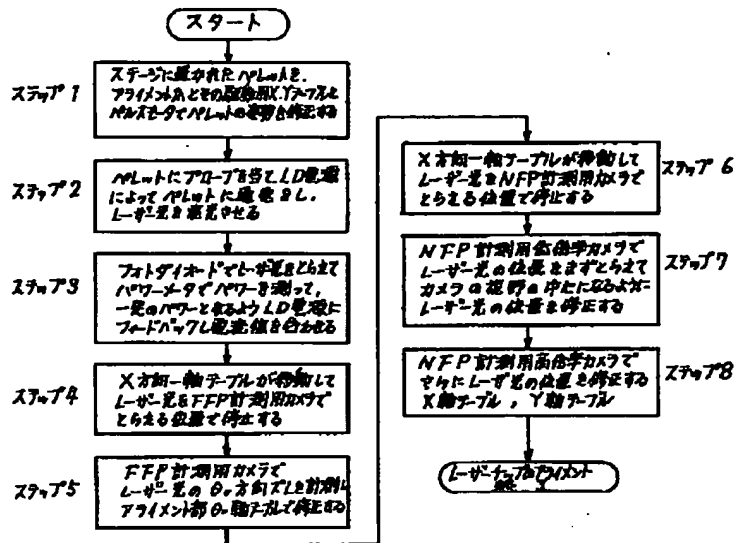 スタート
ステップ1
ステージに置かれたペレットを、
アライメント爪とその駆動用X,Yテーブルと
パルスモータでペレットの姿勢を修正する
ステップ2
ペレットにプローブを当てLD電源
によってペレットに通電をし、
レーザー光を発光させる
ステップ3
フォトダイオードでレーザ光をとらえて
パワーメータでパワーを測って、
一定のパワーとなるようLD電源に
フィードバックし電流値を合わせる
ステップ4
X方向一軸テーブルが移動して
レーザー光をFFP計測用カメラで
とらえる位置で停止する
ステップ5
FFP計測用カメラで
レーザー光のθ 方向ズレを計測し
アライメント部θ 軸テーブルで修正する
X方向一軸テーブルが移動して
レーザー光をNFP計測用カメラで
とらえる位置で停止する
ステップ6
NFP計測用低倍率カメラで
レーザー光の位置をまずとらえて
カメラの視野の中心になるように
レーザー光の位置を修正する
ステップ7
NFP計測用高倍率カメラで
さらにレーザ光の位置を修正する
X軸テーブル,Y軸テーブル
ステップ8
アライメント